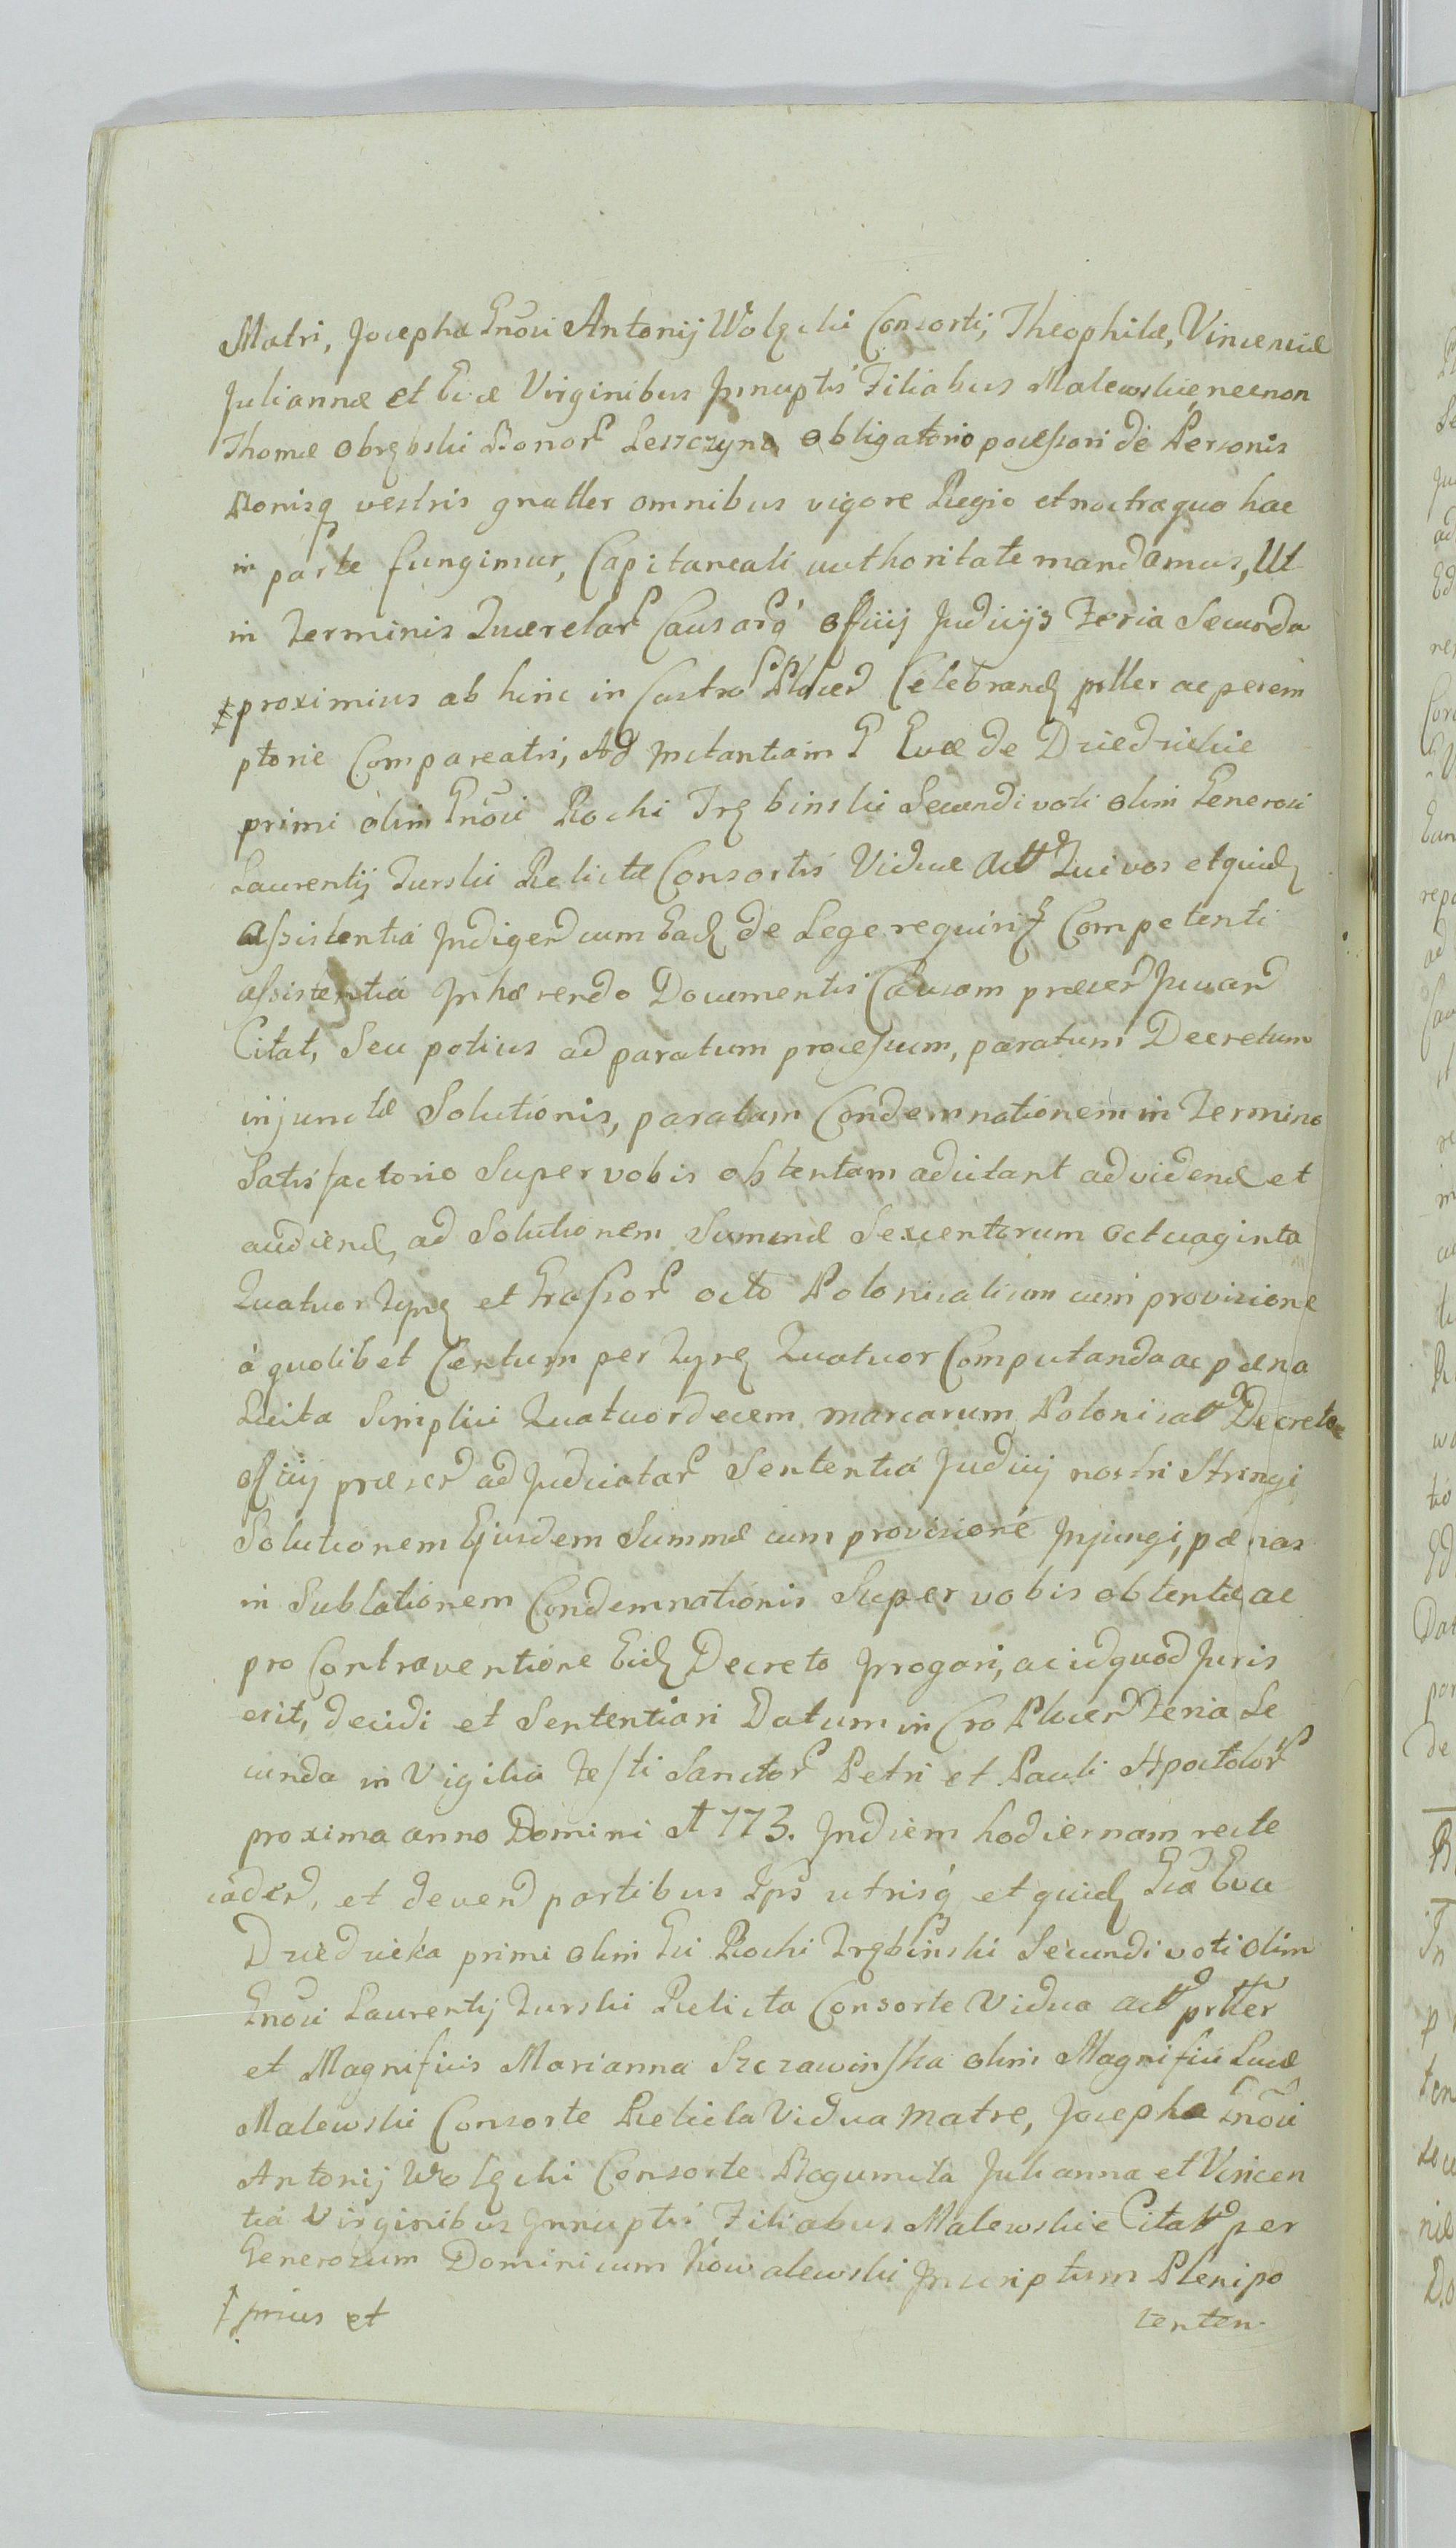 Matri, Josepha Gnosi Antonij Wolęcki Consorti, Theophilæ, Vincenciæ
Juliannæ et Evæ Virginibus Innuptis Filiabus Malewskie, necnon
Thomæ Obrębski Bonor Leszczyno Obligatorio possessori de Personis
Bonisq vestris gnatler omnibus vigore Regio et nostra quo hac
in parte fungimur, Capitaneali authoritate mandamus, Ut
in Terminis Querelar Causarq officij Judicijs Feria Secunda
‡ proximius ab hinc in Castro Plocen Celebrand prller ac perem
ptorie Compareatis, Ad Instantiam G Evæ de Dziedzickie
primi olim Gnosi Rochi Trębinski Secundi voti olim Generosi
Laurentij Turski Relictæ Consortis Viduæ Act Qui vos et quid
assistentiá Indigen cum Ead de Lege requiri Competenti
assistentiá Inhærendo Documentis Causam præsen Juvan
Citat, Seu potius ad paratum processum, paratum Decretum
injunctæ Solutionis, paratam Condemnationem in Termino
Satisfactorio Super vobis obtentam adcitant ad vidend et
audiend, ad Solutionem Summæ Sexcentorum octuaginta
Quatuor Tynf et Grossor octo Polonicalium cum provisione
á quolibet Centum per Tynf Quatuor Computanda ac pæna
Lucita Simplici Quatuordecem marcarum Polonicat Decreto
officij præsen adjudicatar Sententiá Judicij nostri Stringi
Solutionem Ejusdem Summæ cum provisioné Injungi, pænas
in Sublationem Condemnationis Super vobis obtentæ ac
pro Contraventione Eid Decreto Irrogari, ac id quod Juris
erit, decidi et Sententiari Datum in Cro Plocen Feria Se
cunda in Vigilia Festi Sanctor Petri et Pauli Apostolor
proxima anno Domini 1773. Indiem hodiernam recte
caden, et deven partibus Ips utrisq et quid Gsa Eva
Dziedzicka primi olim Gsi Rochi Trębinski Secundi voti olim
Gnosi Laurentij Turski Relicta Consorte Vidua act prller
et Magnificis Marianna Szczawinska olim Magnifici Lucæ
Malewski Consorte Relicta Vidua Matre, Josepha Gnosi
Antonij Wolęcki Consorte Bogumila Julianna et Vincen
tiá Virginibus Innuptis Filiabus Malewskie Citat per
Generosum Dominicum Kowalewski Inscriptum Plenipo
‡ prius et
tenten